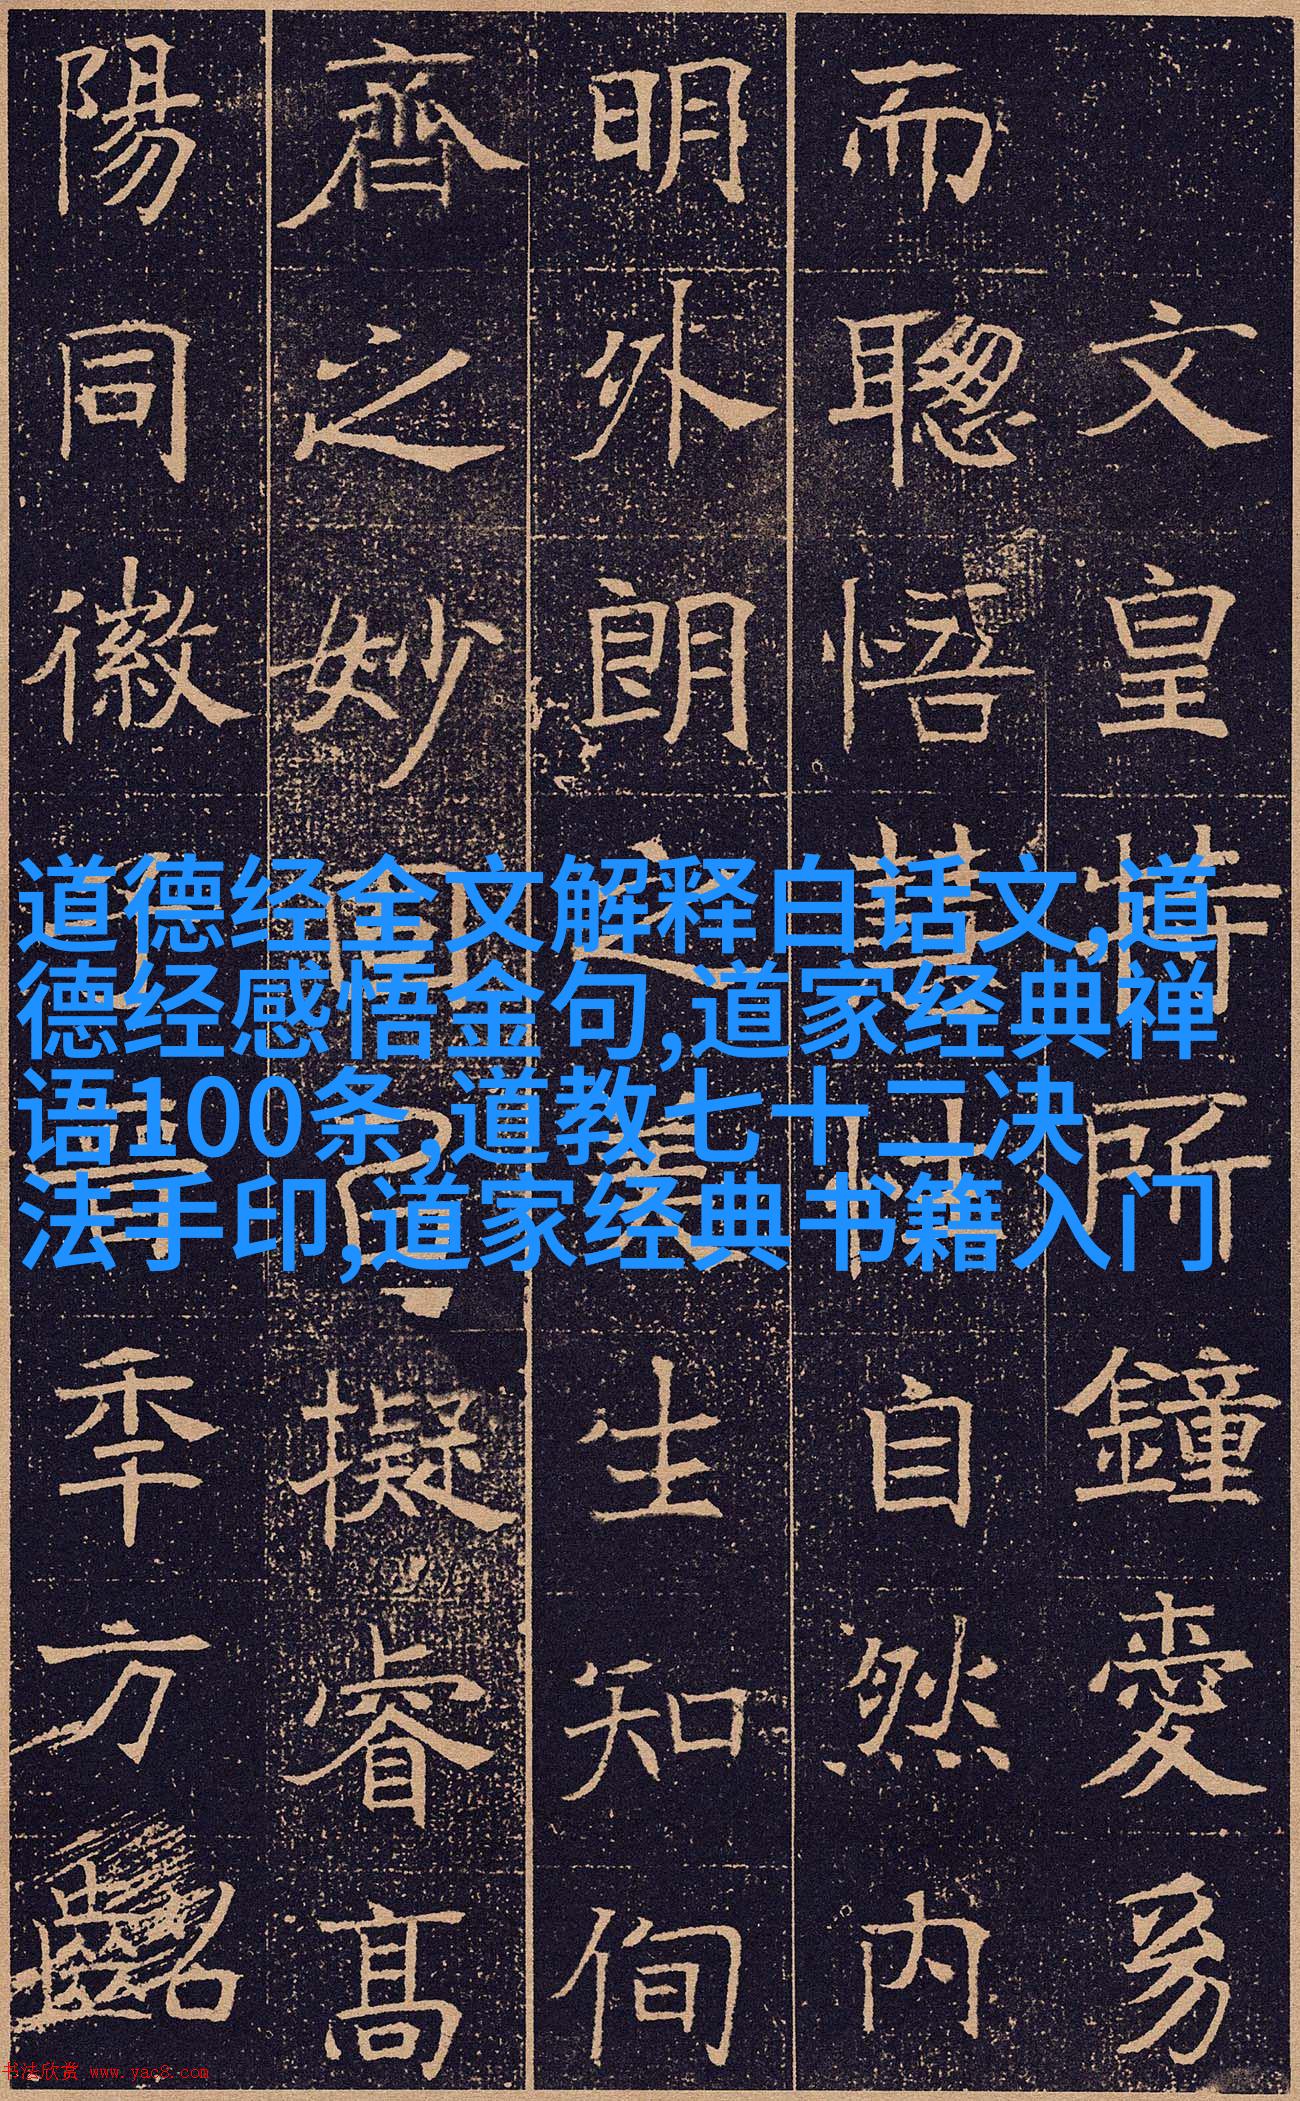 文皇特所鐘愛
而聰悟自然内
明外朗之生知侚
齊之妙擬睿高
陽同徽晋季方齠
道德经全文解释白话文,道
德经感悟金句,道家经典禅
语100条,道教七十二决
法手印,道家经典书籍入门
书法欣赏 www.yac8.com